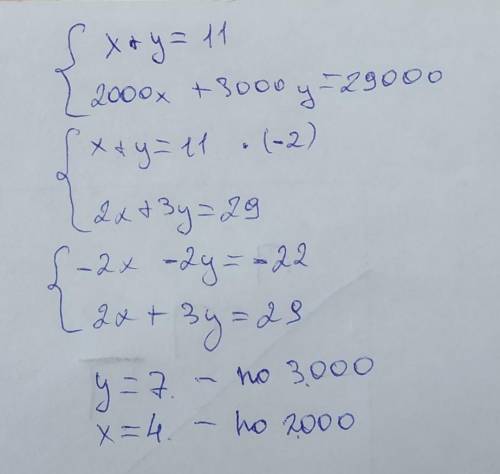 x + y = 11
2000x + 3000y = 29000
x + y = 11 · (-2)
2x + 3y = 29
-2x -2y = -22
2x + 3y = 29
y = 7. – по 3.000
x = 4. – по 2000